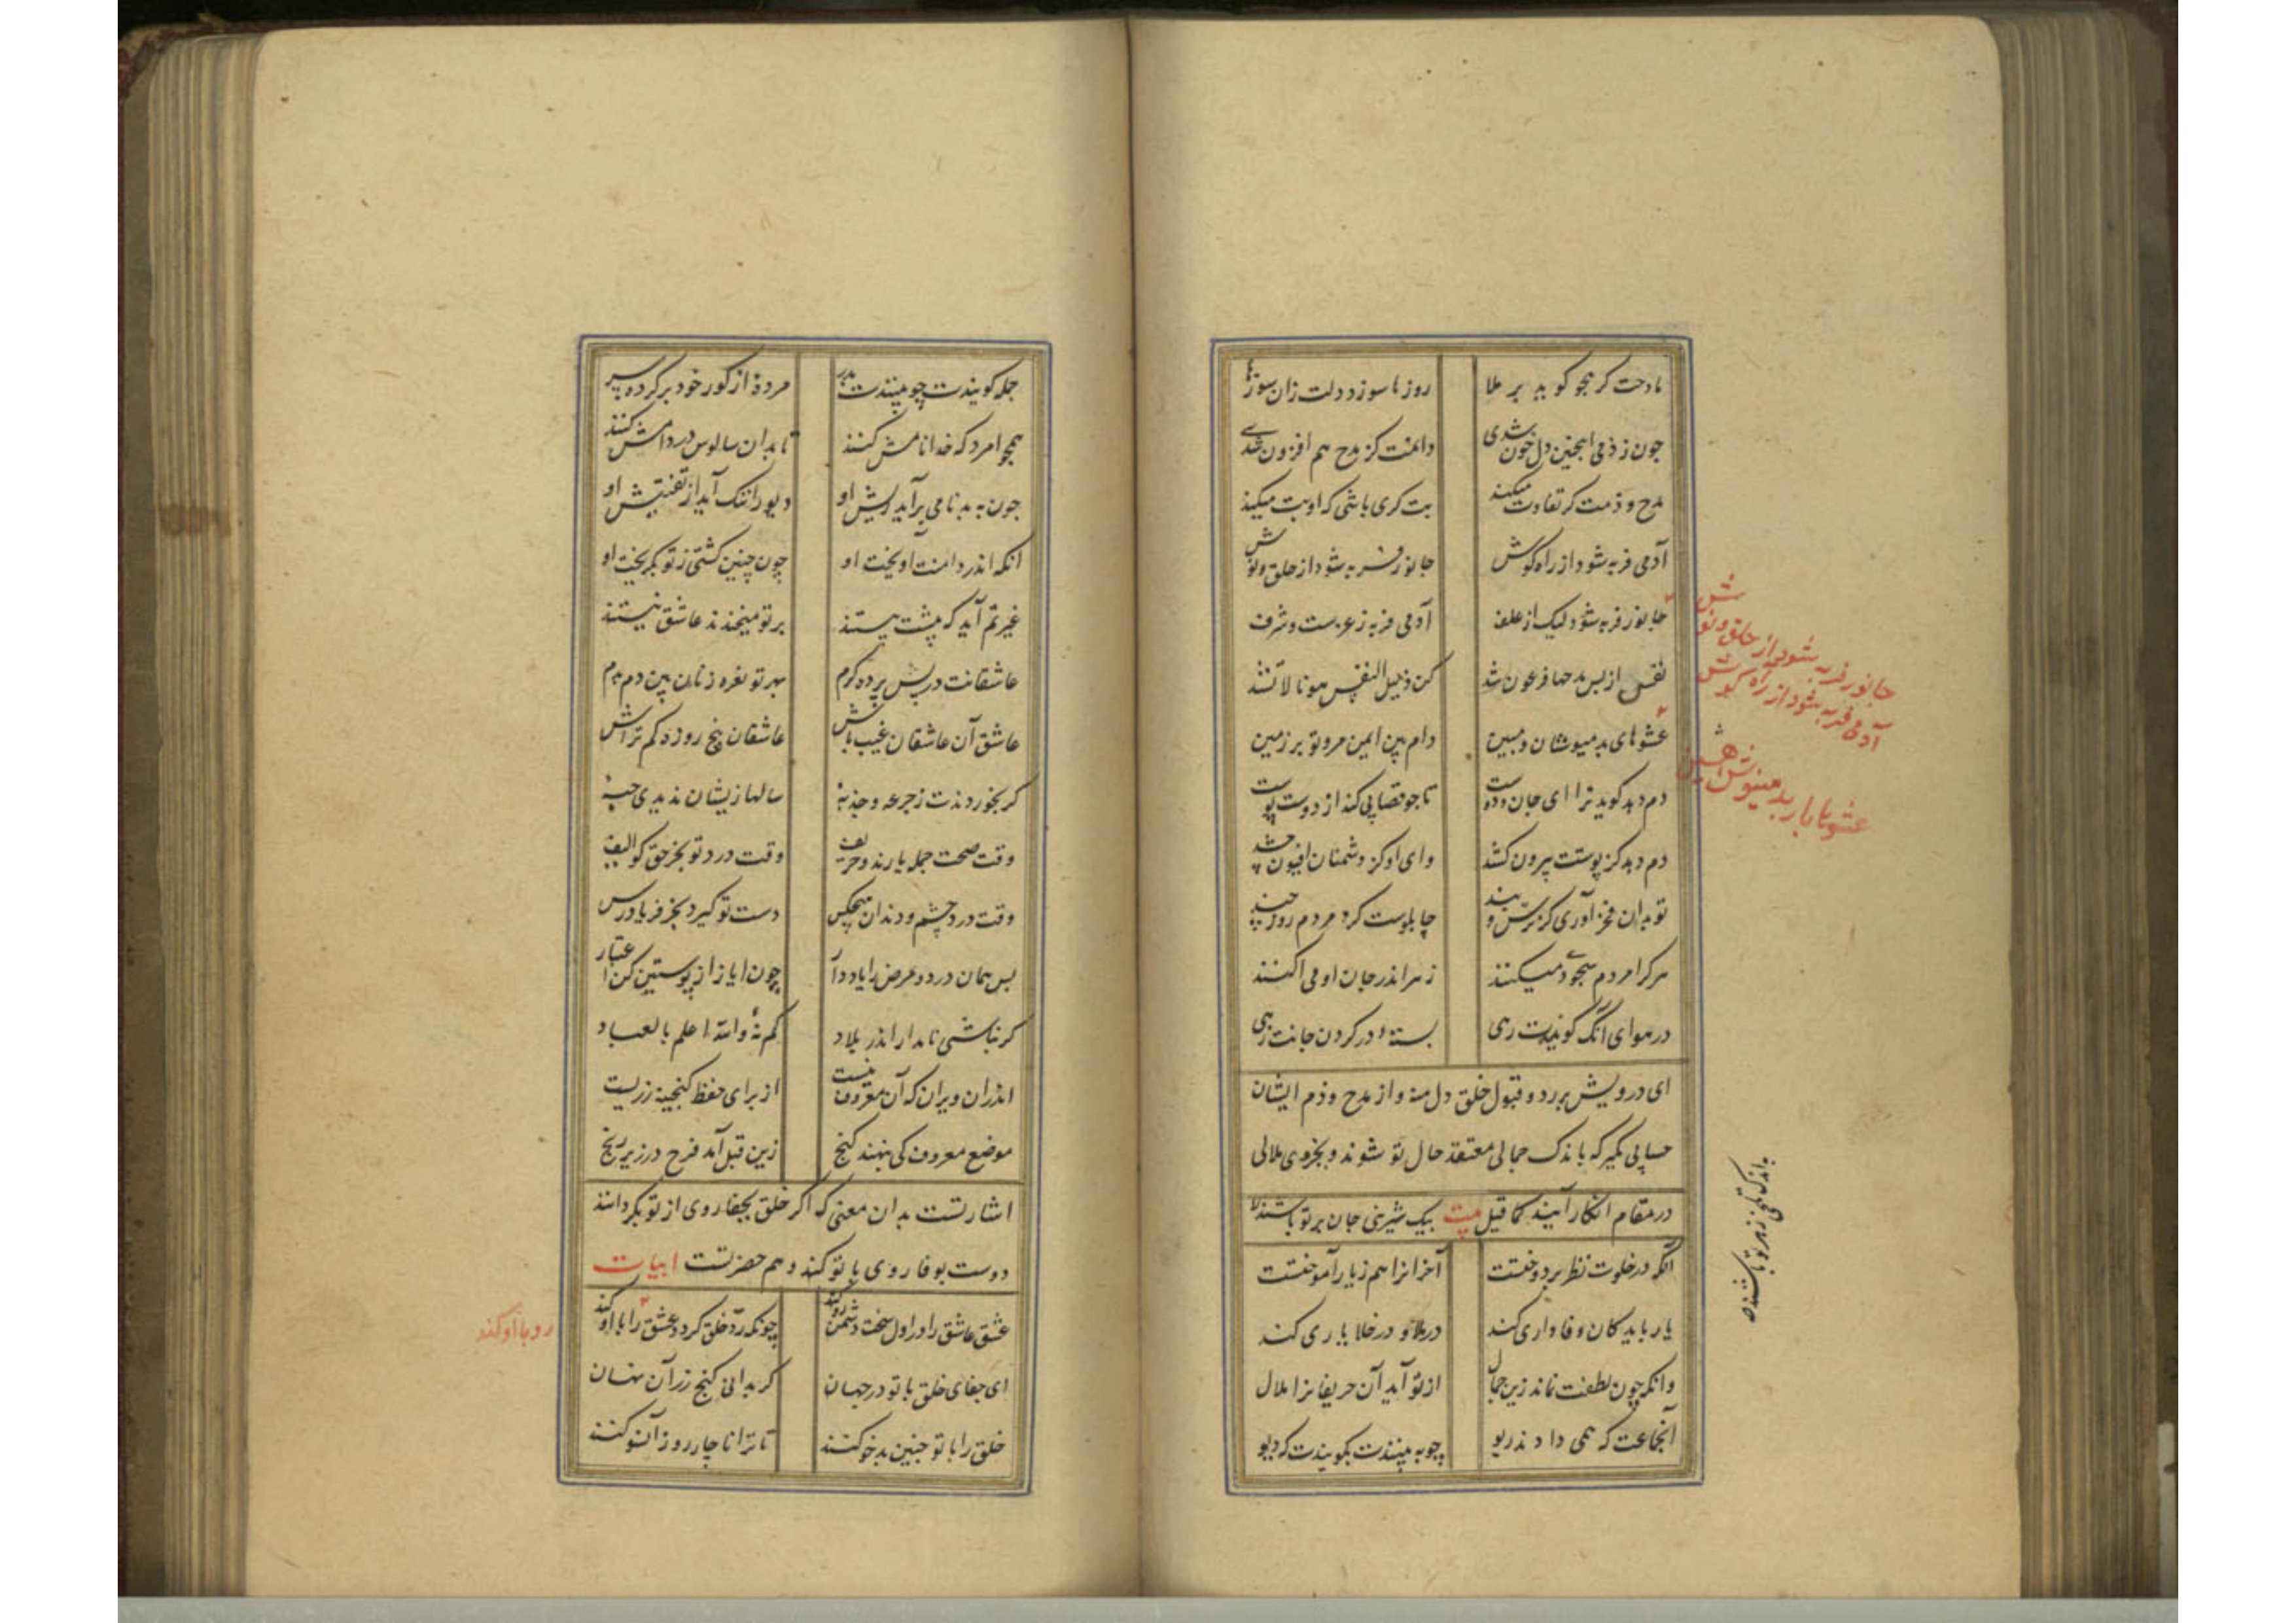 مادحت کر هجو کوید بر ملا روزها سوزد دلت زان سوزها
جون ز ذمی اینجنین دل خون شدی دامنت کز مدح هم افزون شدی
مدح و ذمت کر تفاوت میکند بت کری باشی که او بت میکند
آدمی فربه شود از راه کوش جانور فربه شود از حلق و نوش
جانور فربه شود لیک از علف آدمی فربه ز عزست و شرف
نفس از بس مدحها فرعون شد کن ذلیل النفس هونا لا تشد
عشوهای بد مینوشان و مبین دام بین ایمن مرو تو بر زمین
دم دهد کوید ترا ای جان و دوست تا جو قصابی کند از دوست پوست
دم دهد کز پوستت بیرون کشد وای او کز دشمنان افیون چشد
تو بدان فخر آوری کز ترس و بند چاپلوست کرد مردم روز چند
هر کرا مردم سجودی میکنند زهر اندر جان او می آکنند
در هوای آنک کویندت رهی بستهٔ در کردن جانت رهی
ای درویش بر رد و قبول خلق دل منه و از مدح و ذم ایشان
حسابی مکیر که باندک جمالی معتقد حال تو شوند و بجزوی ملالی
در مقام انکار آیند کما قیل بیت بیک شیرینی جان بر تو باشند
آنکه در خلوت نظر بر دوختست آخر آنرا هم ز یار آموختست
یار باید کان وفاداری کند در بلا و در خلا یاری کند
وانکه چون لطفت نماند زین جمال از تو آید آن حریفانرا ملال
آنجماعت که همی دادند ریو چو به بینندت بکویندت که دیو
جانور فربه شود از حلق و نوش
آدمی فربه شود از راه کوش
باندک تلخی زهر تو باشند
جمله کویندت چو بینندت بدر مردهٔ از کور خود بر کرده سر
همچو امرد که خدا نامش کنند تا بدان سالوس در دامش کنند
جون به بدنامی بر آید ریش او دیو را ننک آید از تفتیش او
آنکه اندر دامنت آویخت او چون چنین کشتی ز تو بکریخت او
غیرتم آید که پیشت بیستند بر تو میخندند عاشق نیستند
عاشقانت در پس پرده کرم بهر تو نعره زنان بین دم بدم
عاشق آن عاشقان غیب باش عاشقان پنج روزه کم تراش
که بخوردندت ز جرعه و جذبهٔ سالها زیشان ندیدی حبهٔ
وقت صحت جمله یارند و حریف وقت درد تو بجز حق کو الیف
وقت درد چشم و دندان هیچکس دست تو کیرد بجز فریادرس
پس همان درد و مرض را یاد دار چون ایاز از پوستین کن اعتبار
کر نباشی نامدار اندر بلاد کم نهٔ والله اعلم بالعباد
اندران ویران که آن معروف نیست از برای حفظ کنجینه زریست
موضع معروف کی بنهند کنج زین قبل آمد فرح در زیر رنج
اشارتست بدان معنی که اکر خلق بجفا روی از تو بکردانند
دوست بوفا روی با تو کند و هم حضرتست ابیات
عشق عاشق را در اول سخت دشمن رو کند چونکه رد خلق کرد و عشق را با او کند
این جفای خلق با تو در جهان کر بدانی کنج زر آن نهان
خلق را با تو چنین بدخو کنند تا ترا ناچار رو زآنسو کنند
رو با او کند